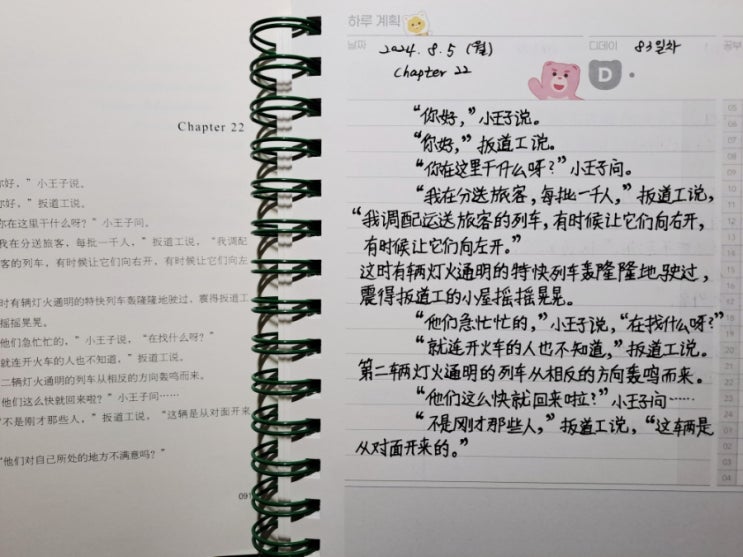 Chapter 22
你好，”小王子说。
你好，”扳道工说。
你在这里干什么呀？”小王子问。
我在分送旅客，每批一千人，”扳道工说，“我调配
客的列车，有时候让它们向右开，有时候让它们向左
时有辆灯火通明的特快列车轰隆隆地驶过，震得扳道工
摇摇晃晃。
他们急忙忙的，”小王子说，“在找什么呀？”
就连开火车的人也不知道，”扳道工说。
二辆灯火通明的列车从相反的方向轰鸣而来。
他们这么快就回来啦？”小王子问……
不是刚才那些人，”扳道工说，“这辆是从对面开来
“他们对自己所处的地方不满意吗？”
091
하루 계획
날짜 2024. 8. 5 (월) 디데이 83일차
Chapter 22
D
“你好，”小王子说。
“你好，”扳道工说。
“你在这里干什么呀？”小王子问。
“我在分送旅客，每批一千人，”扳道工说，
“我调配运送旅客的列车，有时候让它们向右开，
有时候让它们向左开。”
这时有辆灯火通明的特快列车轰隆隆地驶过，
震得扳道工的小屋摇摇晃晃。
“他们急忙忙的，”小王子说，“在找什么呀？”
“就连开火车的人也不知道，”扳道工说。
第二车辆灯火通明的列车从相反的方向轰鸣而来。
“他们这么快就回来啦？”小王子问……
“不是刚才那些人，”扳道工说，“这车辆是
从对面开来的。”
05
06
07
08
09
10
11
12
13
14
15
16
17
18
19
20
21
22
23
24
01
02
03
04